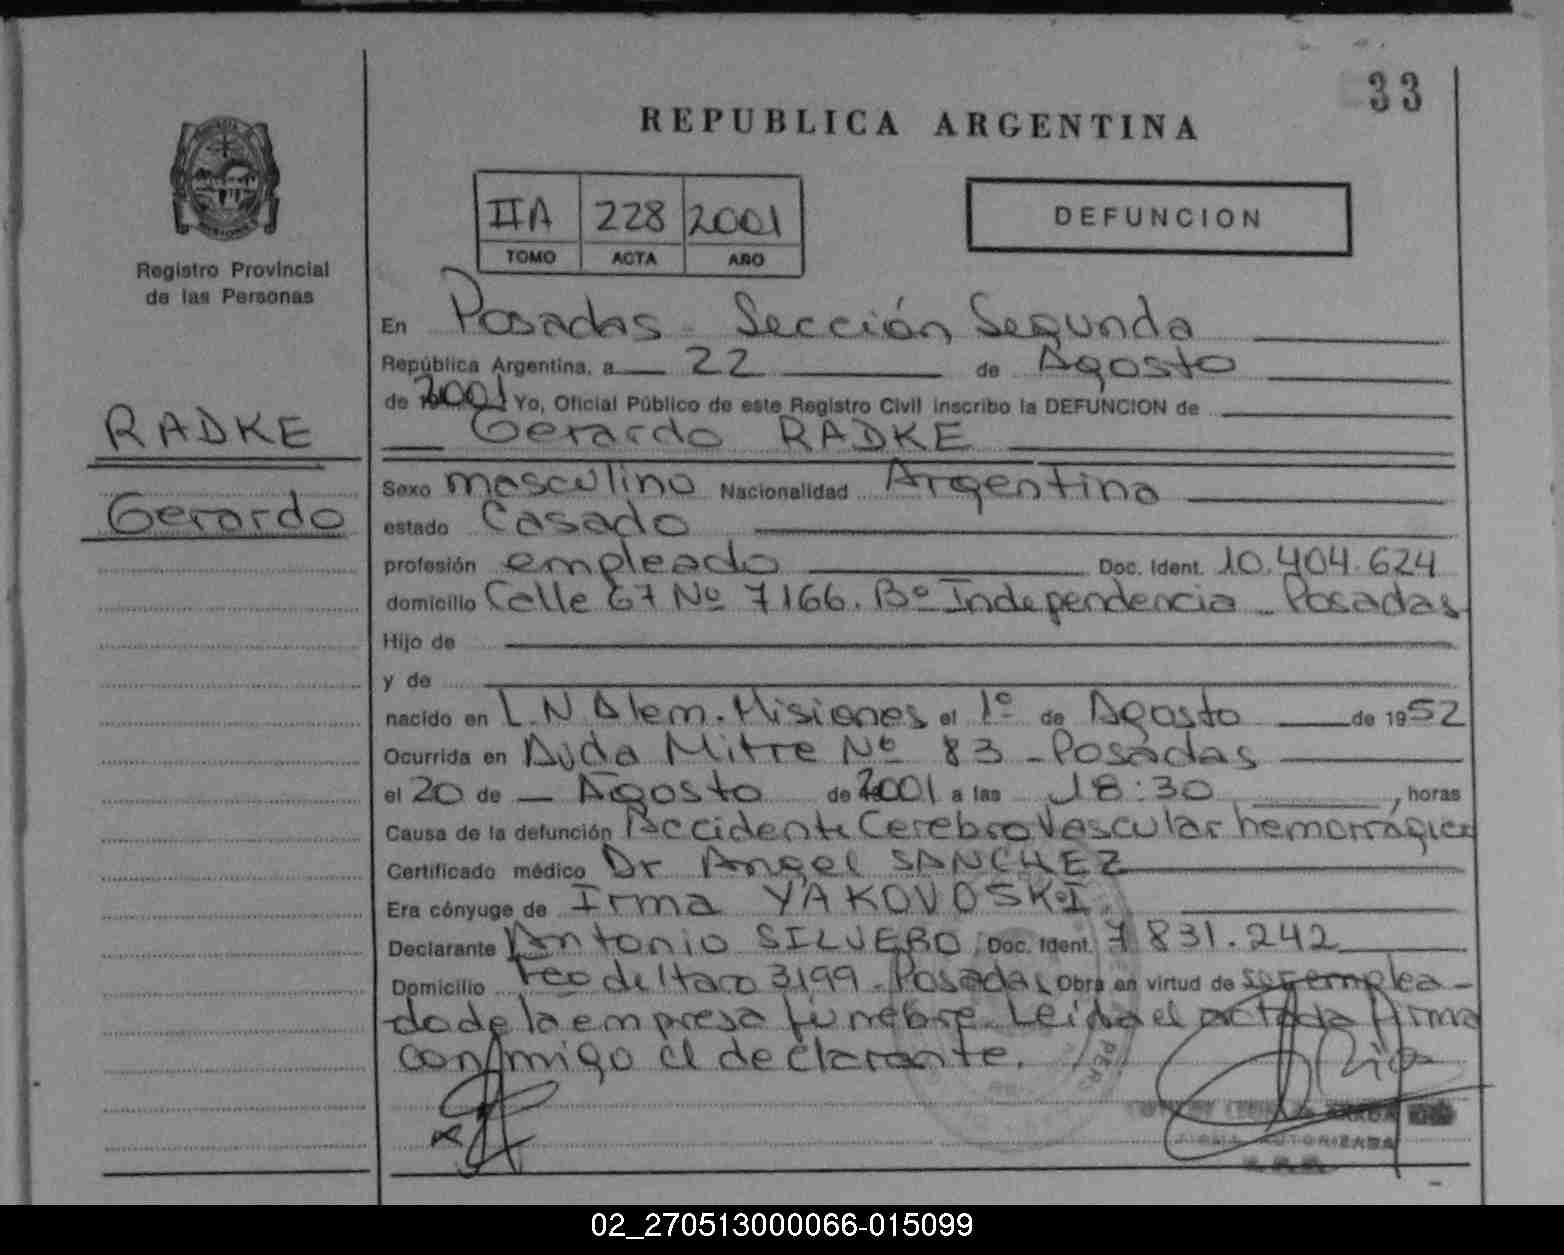 33
REPUBLICA ARGENTINA
IIA 228 2001
TOMO ACTA AÑO
DEFUNCION
Registro Provincial
de las Personas
RADKE
Gerardo
En Posadas - Sección Segunda
República Argentina, a 22 de Agosto
de 2001 Yo, Oficial Público de este Registro Civil inscribo la DEFUNCION de
Gerardo RADKE
Sexo masculino Nacionalidad Argentina
estado Casado
profesión empleado Doc. Ident. 10.404.624
domicilio Calle 67 Nº 7166. Bº Independencia - Posadas
Hijo de
y de
nacido en L.N Alem. Misiones el 1º de Agosto de 1952
Ocurrida en Avda Mitre Nº 83 - Posadas
el 20 de Agosto de 2001 a las 18:30, horas
Causa de la defunción Accidente Cerebro Vascular hemorrágico
Certificado médico Dr Angel SANCHEZ
Era cónyuge de Irma YAKOVOSKI
Declarante Antonio SILVERO Doc. Ident. 7831.242
Domicilio 3199 - Posadas Obra en virtud de ser emplea-
do de la empresa fúnebre. Leida el acta la firma
conmigo el declarante.
AUTORIZADA
02_270513000066-015099